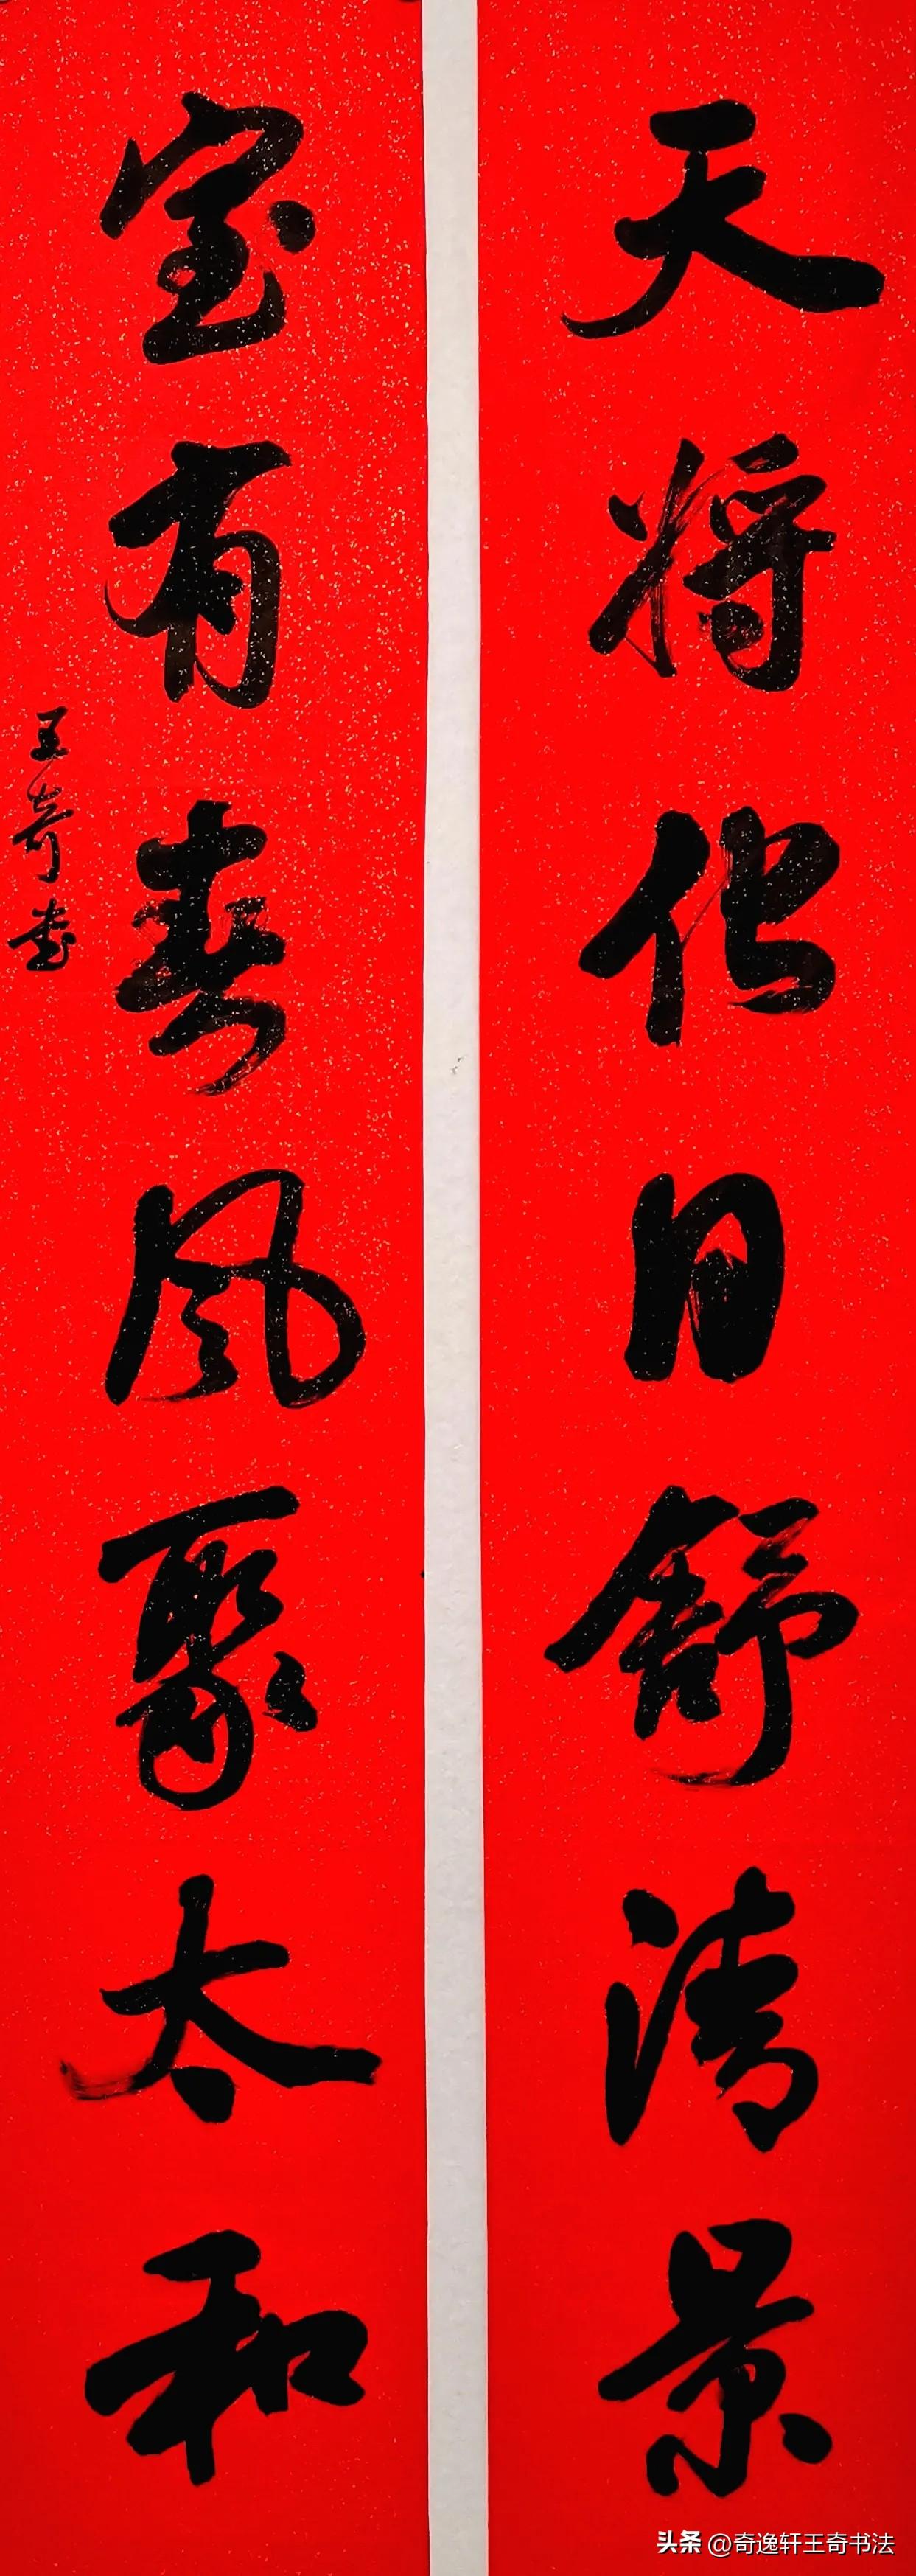 天将化日舒清景
室有春风聚太和
王奇书
头条 @奇逸轩王奇书法